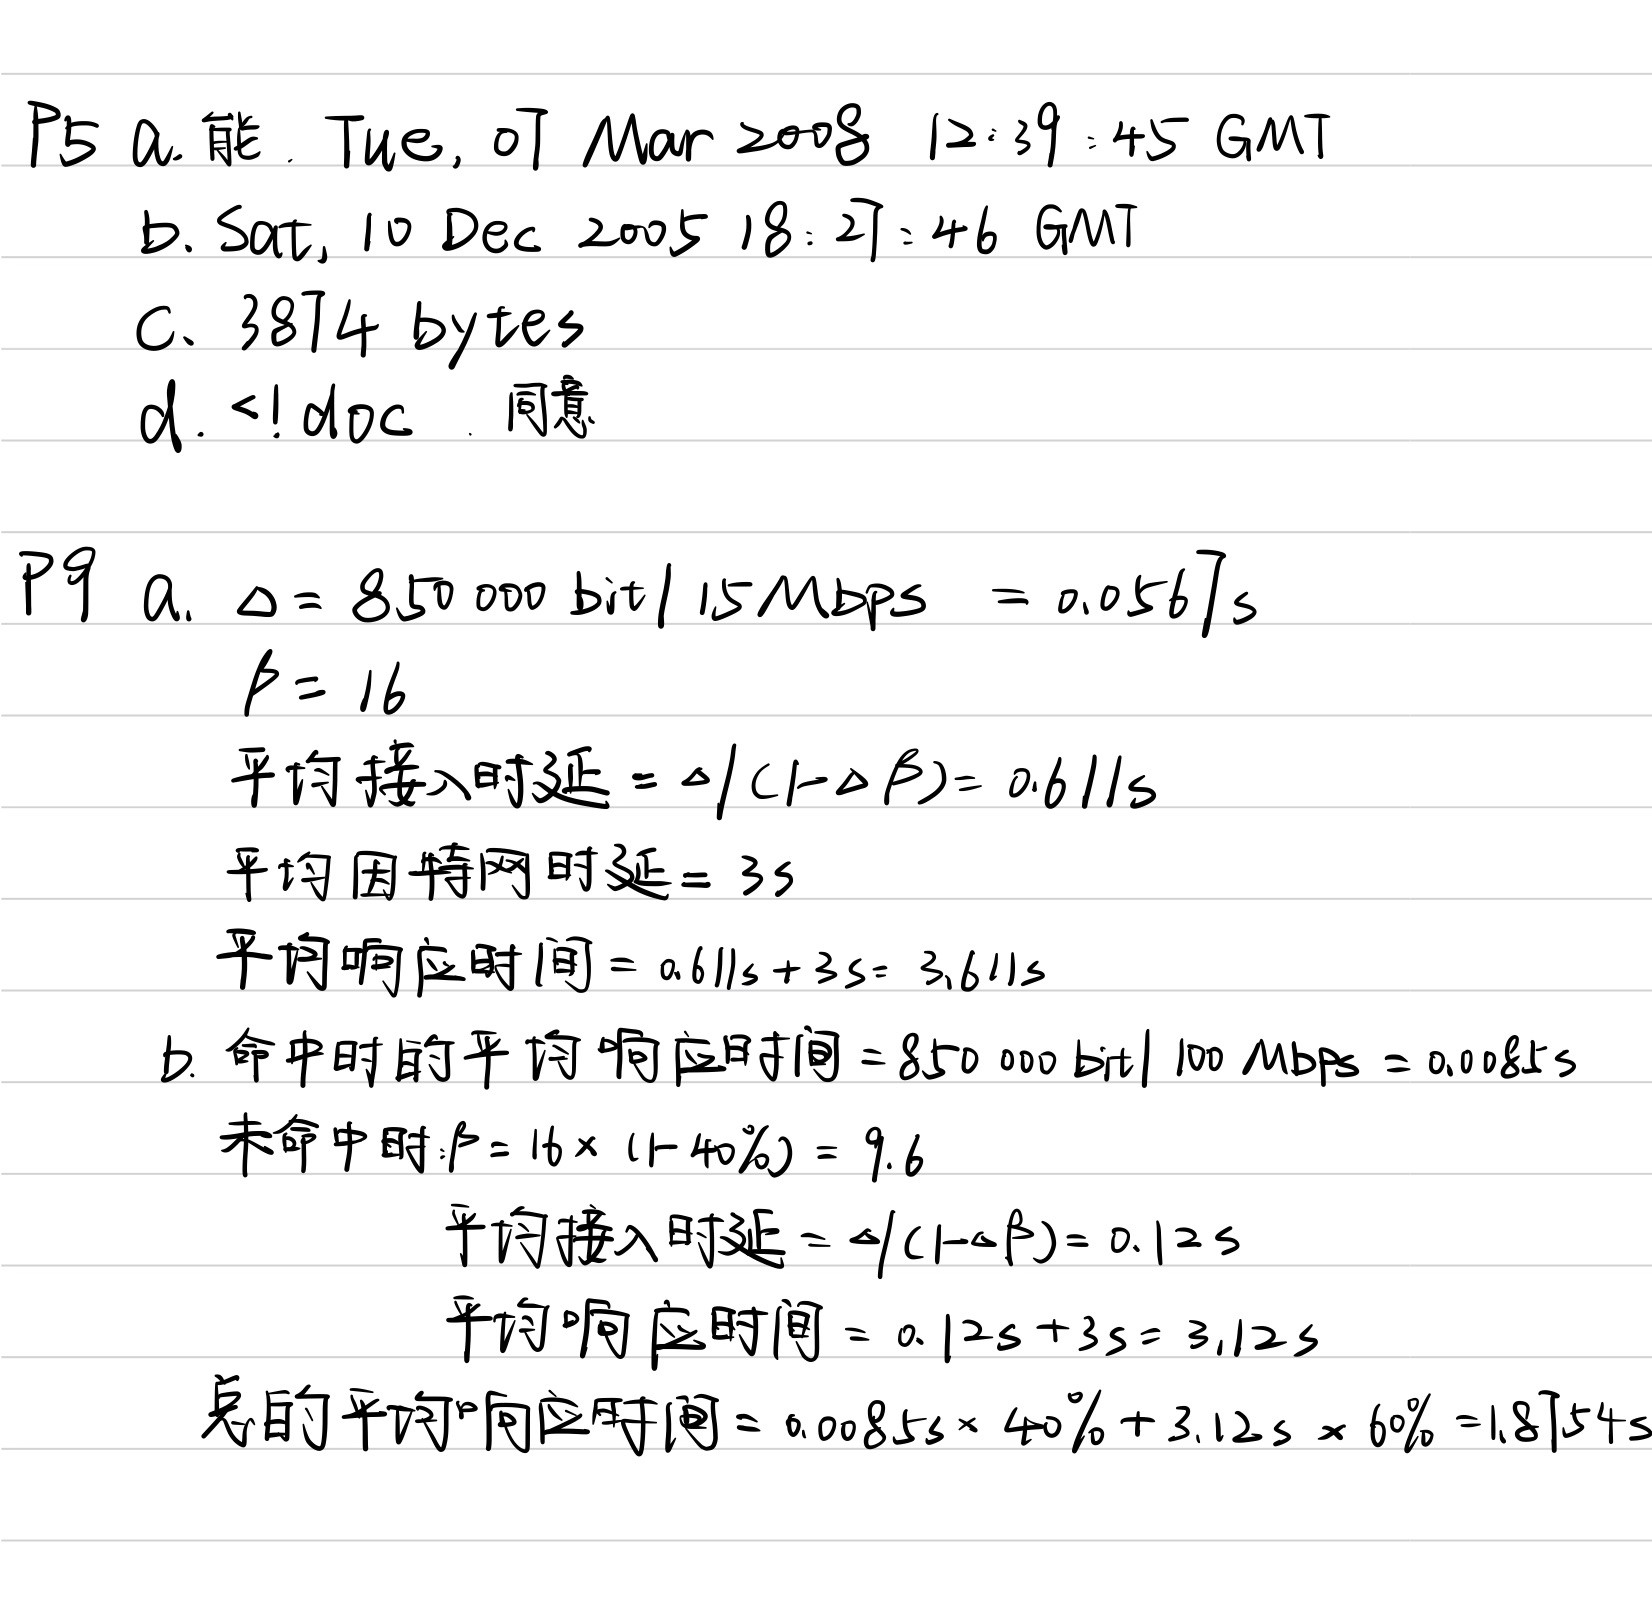 P5 a. 能. Tue, 07 Mar 2008 12:39:45 GMT
b. Sat, 10 Dec 2005 18:27:46 GMT
c. 3874 bytes
d. <!doc. 同意
P9 a. Δ = 850 000 bit / 15 Mbps = 0.0567s
β = 16
平均接入时延 = Δ/(1-Δβ) = 0.611s
平均因特网时延 = 3s
平均响应时间 = 0.611s + 3s = 3.611s
b. 命中时的平均响应时间 = 850 000 bit / 100 Mbps = 0.0085s
未命中时:β = 16 × (1-40%) = 9.6
平均接入时延 = Δ/(1-Δβ) = 0.12s
平均响应时间 = 0.12s + 3s = 3.12s
总的平均响应时间 = 0.0085s × 40% + 3.12s × 60% = 1.8754s